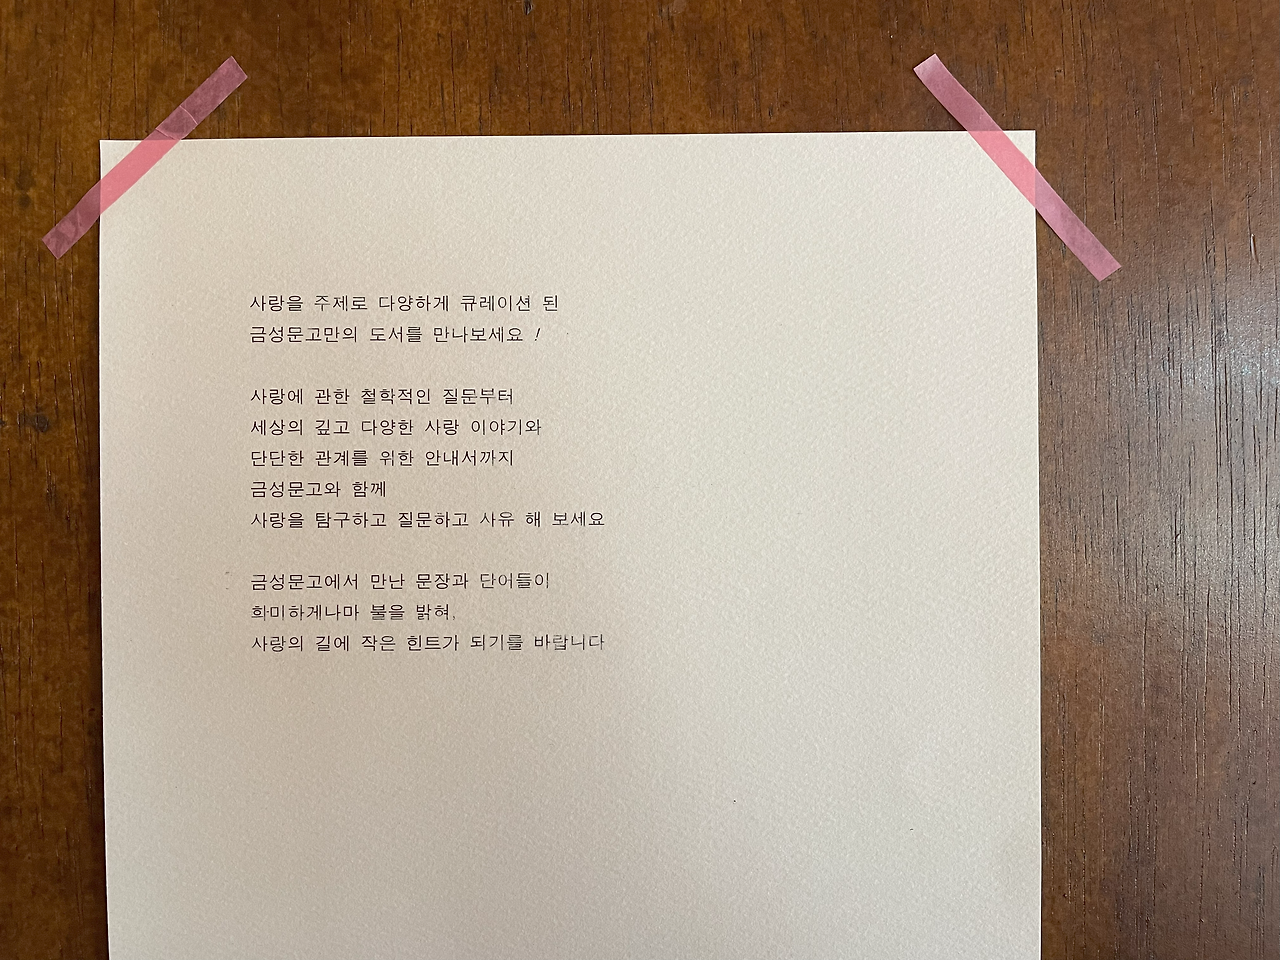 사랑을 주제로 다양하게 큐레이션 된
금성문고만의 도서를 만나보세요 !
사랑에 관한 철학적인 질문부터
세상의 깊고 다양한 사랑 이야기와
단단한 관계를 위한 안내서까지
금성문고와 함께
사랑을 탐구하고 질문하고 사유 해 보세요
금성문고에서 만난 문장과 단어들이
희미하게나마 불을 밝혀,
사랑의 길에 작은 힌트가 되기를 바랍니다